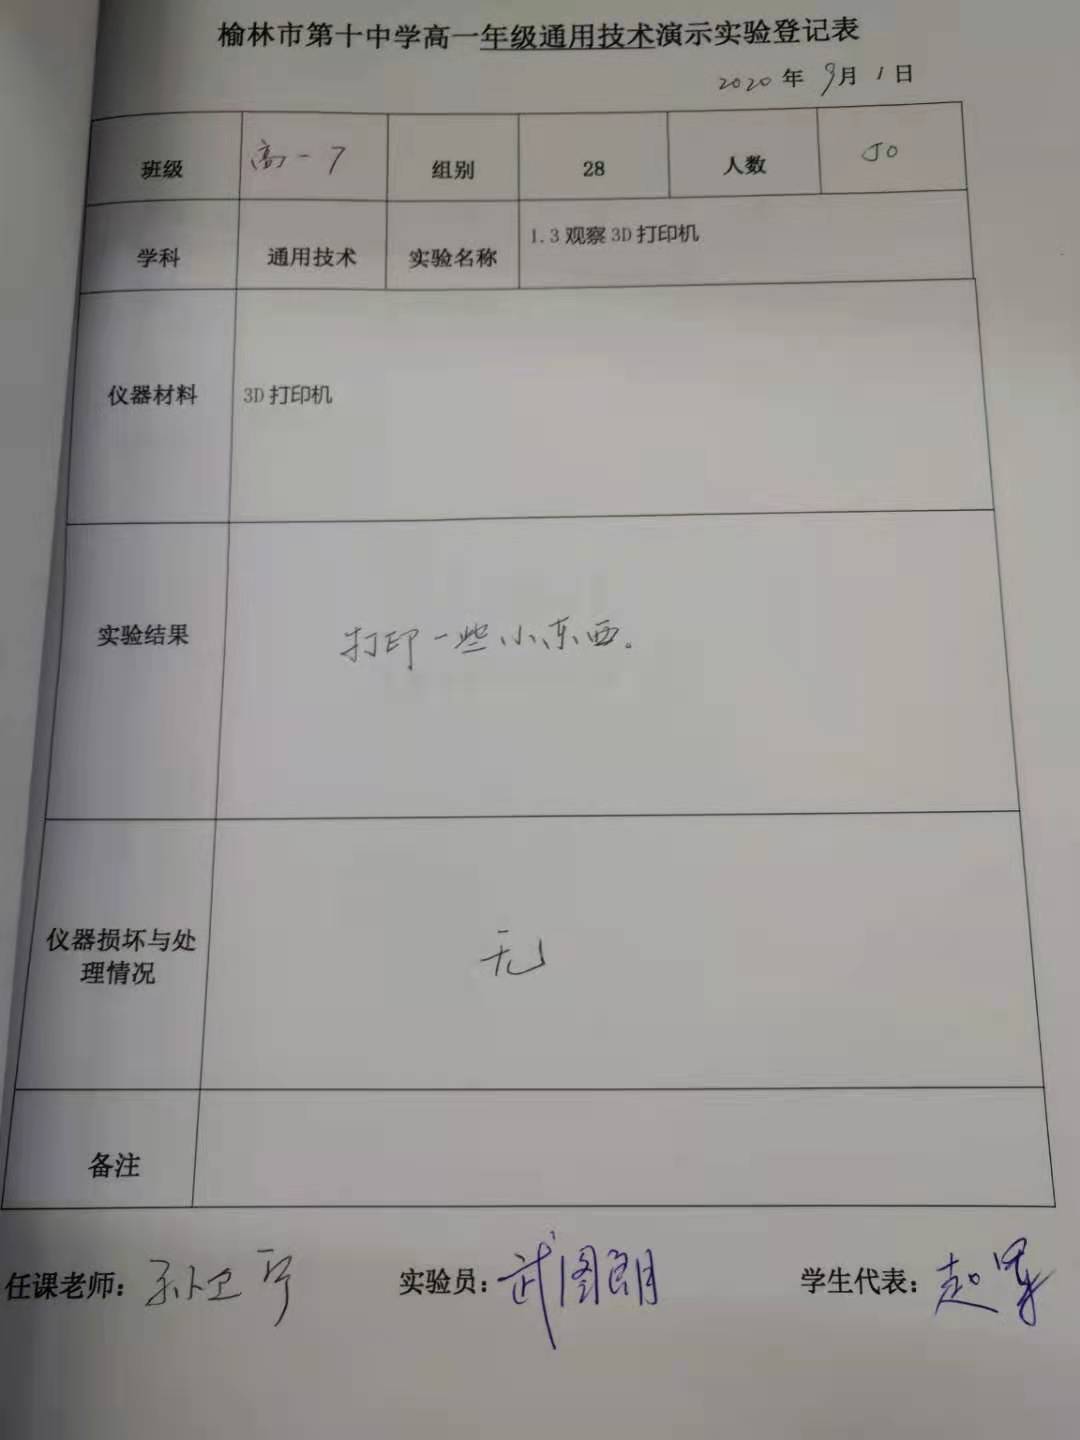 榆林市第十中学高一年级通用技术演示实验登记表
2020 年 9月 1日
班级 高一7 组别 28 人数 50
学科 通用技术 实验名称 1.3观察3D打印机
仪器材料 3D打印机
实验结果 打印一些小东西.
仪器损坏与处
理情况
无
备注
任课老师: 孙卫 实验员: 武图朗 学生代表: 赵